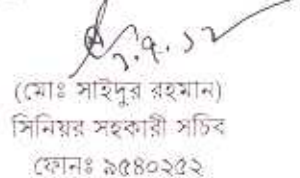 ২.৭.১২
(মোঃ সাইদুর রহমান)
সিনিয়র সহকারী সচিব
ফোনঃ ৯৫৪০২৫২